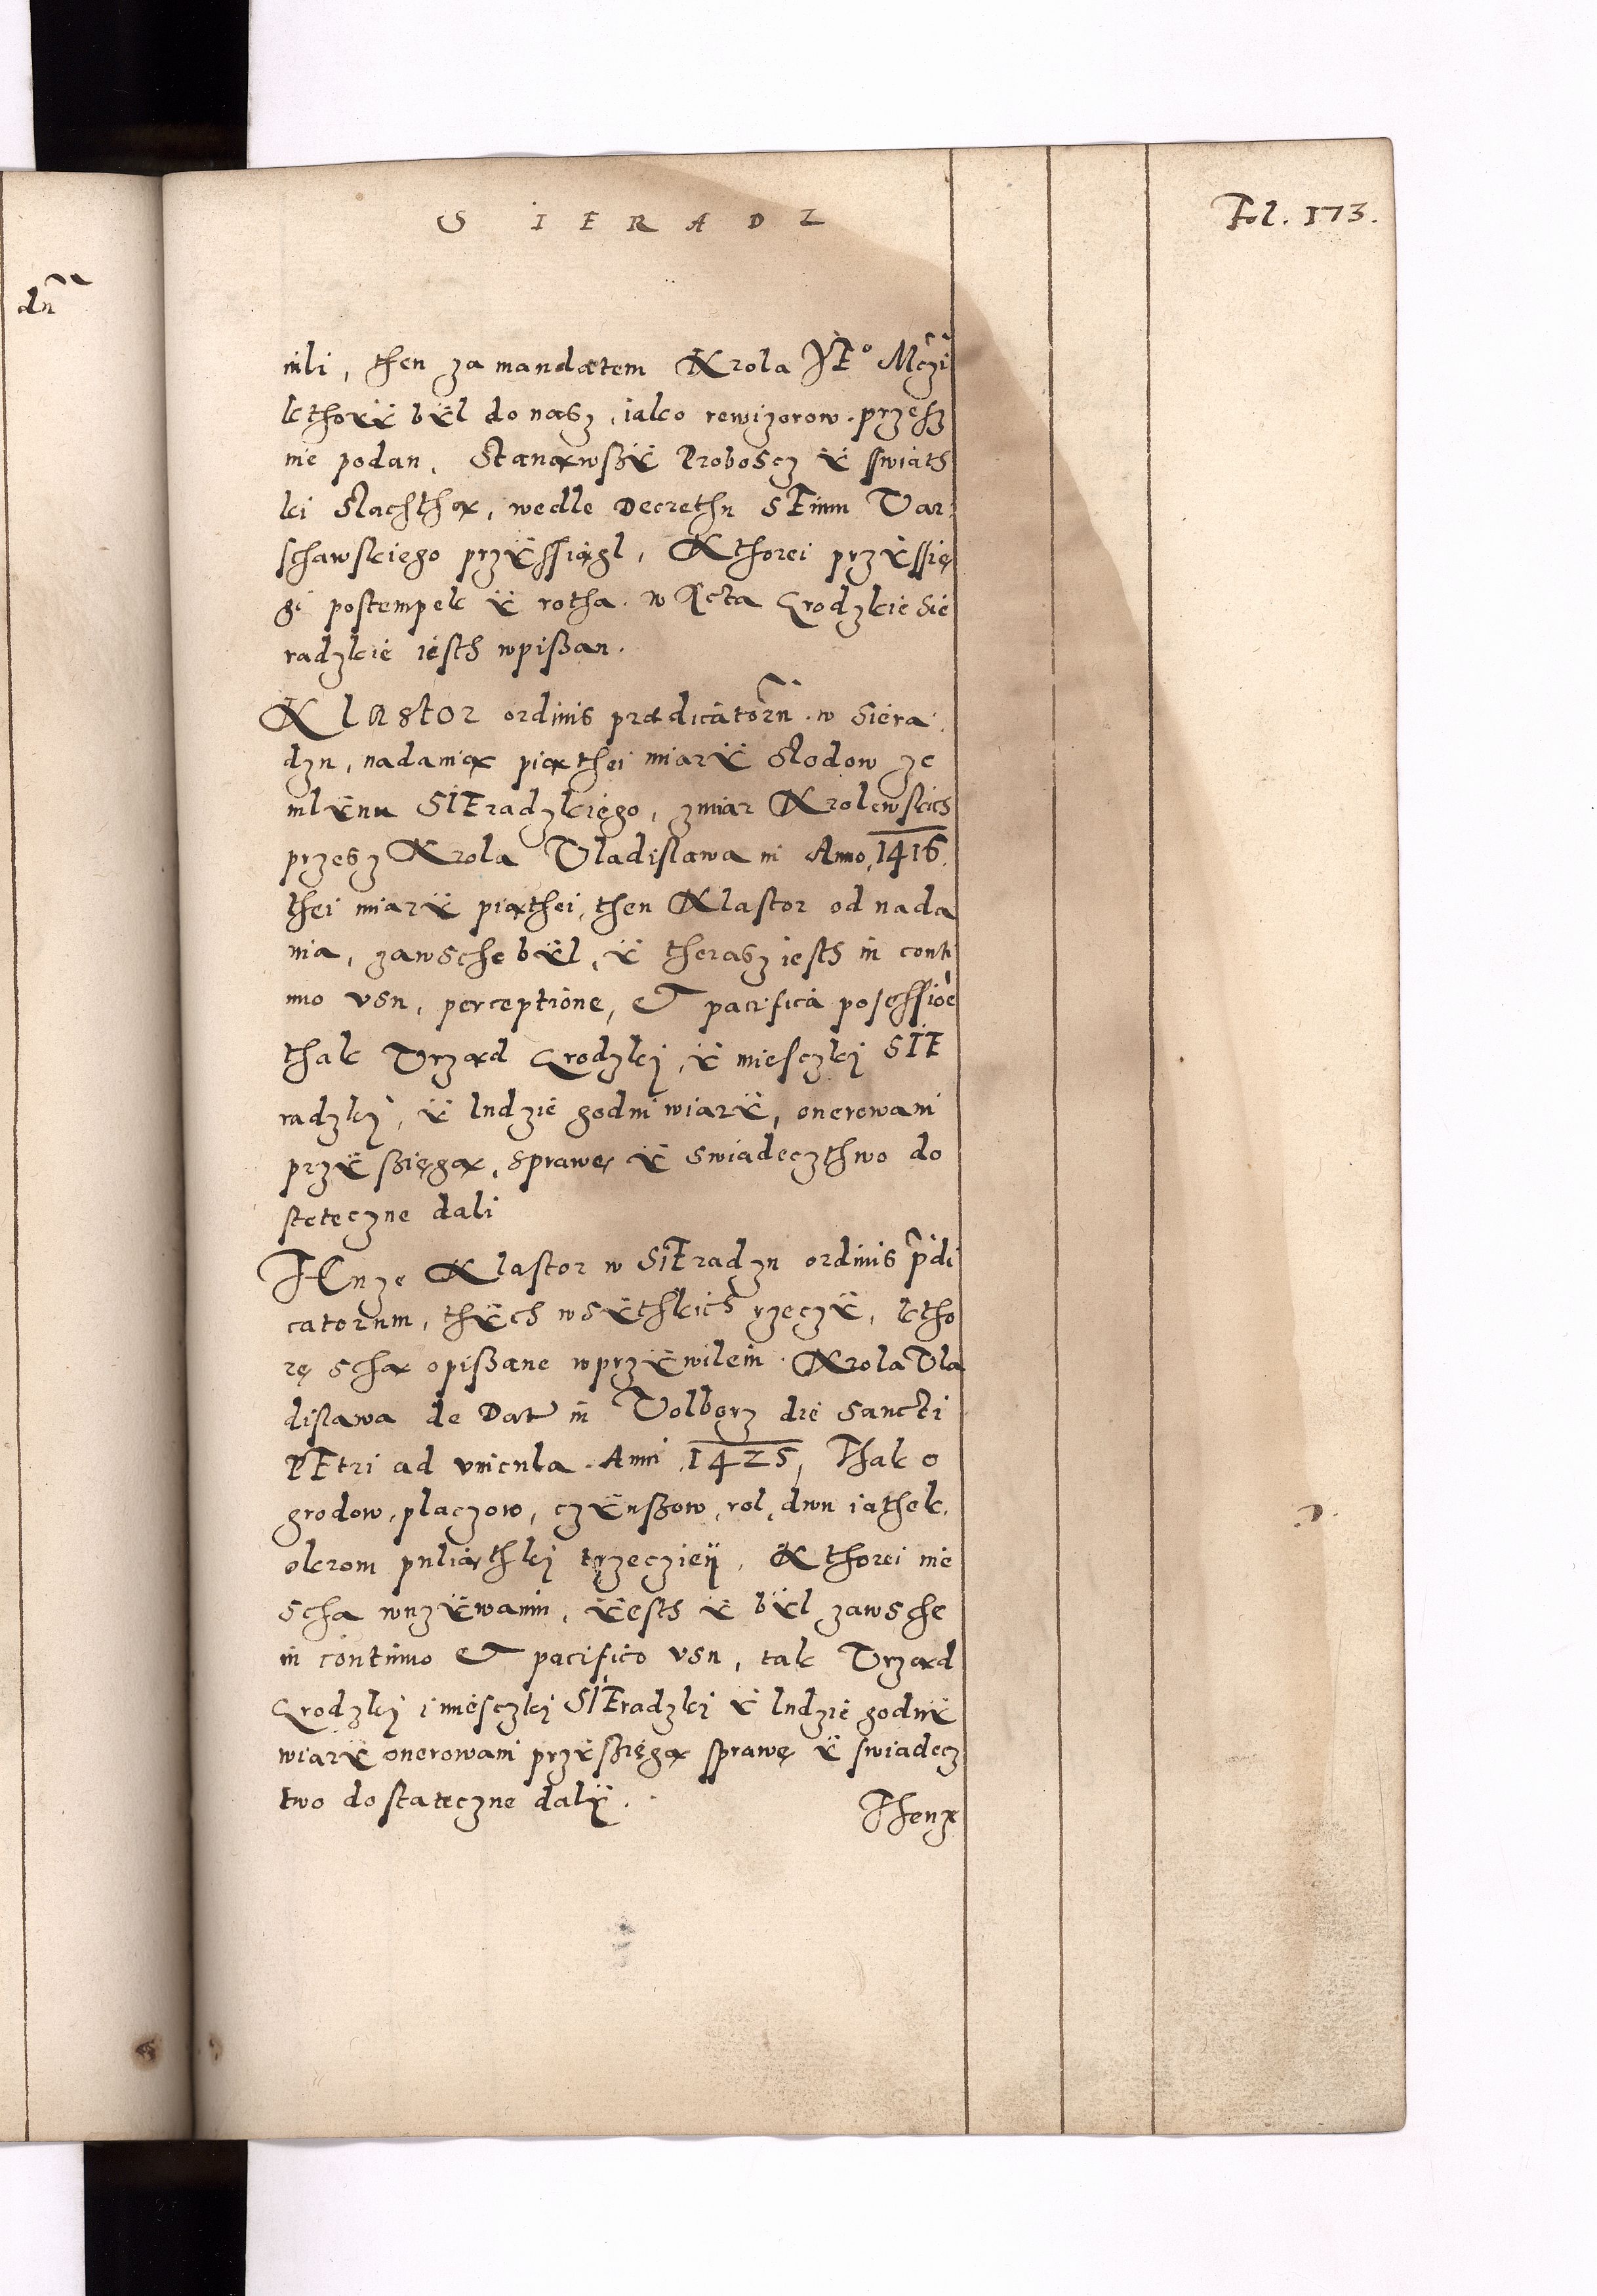 SIERADZ
Fol. 173.
dn̄
nili, then za mandatem Krola JE° Mczi
kthorÿ bÿl do nasz, iako rewizorow. przesz
nie podan, Stanąwßÿ Proboscz ÿ sswiath
ki Slachthą, wedle Decrethu SEimu Var:
schawskiego przÿssiągl, Kthorei przÿssię
gi postempek ÿ rotha. w Acta Grodzkie Sie
radzkie iesth wpißan.
Klastor ordinis prædicatorū. w Siera
dzu, nadanią piąthei miarÿ Slodow ze
mlÿnu SIEradzkiego, zmiar Krolewskich
przesz Krola Vladislawa in Anno, 1416.
thei miarÿ piąthei, then Klastor od nada
nia, zawsche bÿl, ÿ therasz iesth in conti
nuo vsu, perceptione, et pacifica posessioe
thak Vrzad Grodzki, ÿ miesczki SIE
radzki, ÿ ludzie godni wiarÿ, onerowani
przÿßięgą, sprawę ÿ swiadeczthwo do
steteczne dali
THenze Klastor w SIEradzu ordinis pdi
catorum, thÿch wsÿthkich rzeczÿ, ktho
rę schą opißane wprzÿwileiu. Krola Vla
dislawa de Dat in Volborz die Sancti
PEtri ad vincula. Anni, 1425, Thak o
grodow, placzow, czÿnßow, rol, dwu iathek,
okrom puliąthki trzecziey, Kthorei nie
scha wuzÿwaniu, ÿesth ÿ bÿl zawsche
in continuo et pacifico vsu, tak Vrzad
Grodzki i miesczki SIEradzki ÿ ludzie godnÿ
wiarÿ onerowani przÿßięgą sprawę ÿ swiadecz
two dostateczne dalÿ.
Thenze